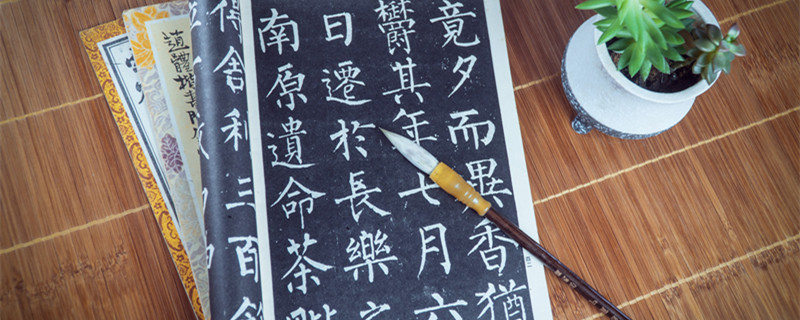 竟夕而異香猶
欝其年七月六
日遷於長樂之
南原遺命茶
得舍利三百餘